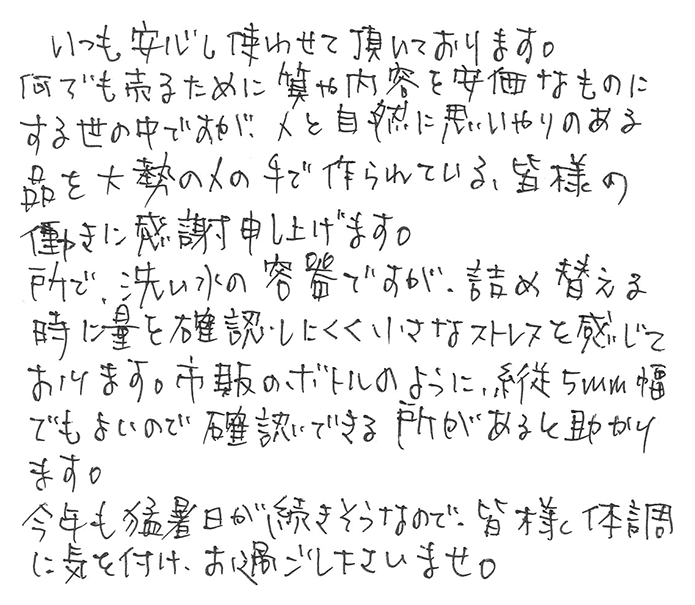 いつも安心し使わせて頂いております。
何でも売るために質や内容を安価なものに
する世の中ですが、人と自然に思いやりのある
品を大勢の人の手で作られている、皆様の
働きに感謝申し上げます。
所で、洗い水の容器ですが、詰め替える
時に量を確認しにくく小さなストレスを感じて
おります。市販のボトルのように、縦5mm幅
でもよいので確認できる所があると助かり
ます。
今年も猛暑日が続きそうなので、皆様、体調
に気を付け、お過ごしくださいませ。